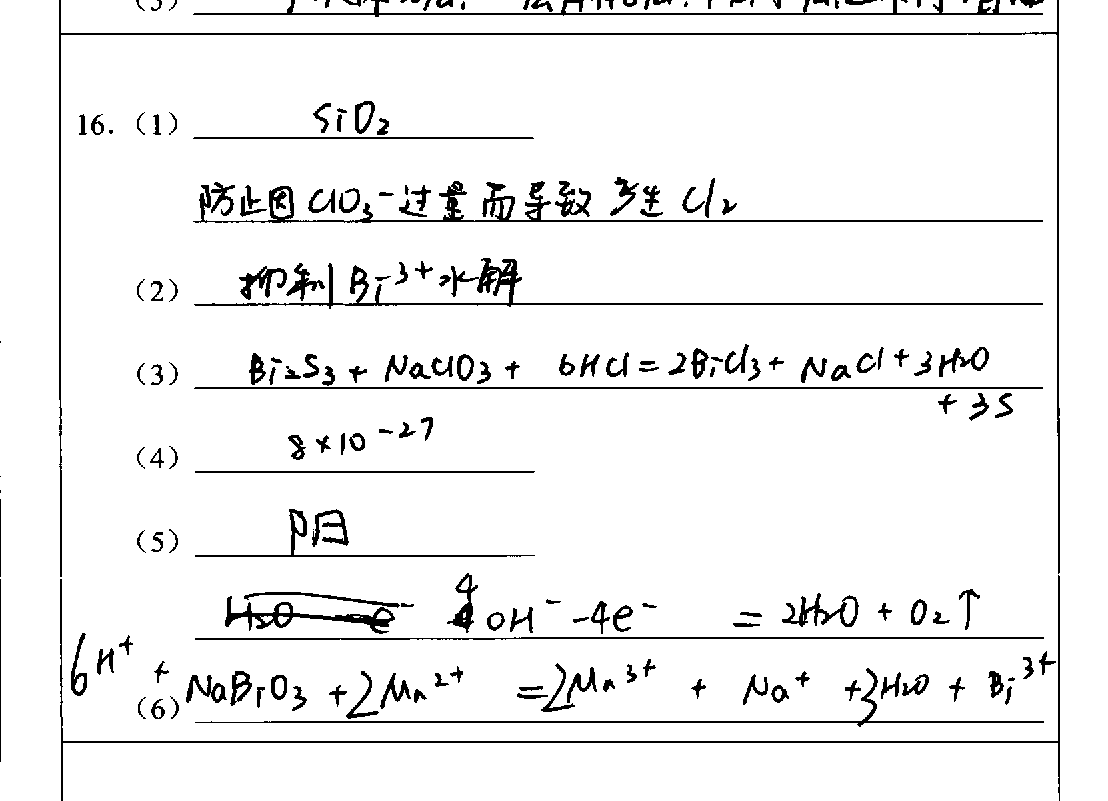 (3)
16. (1) SiO₂
防止因 ClO₃⁻过量而导致产生 Cl₂
(2) 抑制Bi³⁺水解
(3) Bi₂S₃ + NaClO₃ + 6HCl = 2BiCl₃ + NaCl + 3H₂O
+ 3S
(4) 8×10⁻²⁷
(5) 阳
4OH⁻ -4e⁻ = 2H₂O + O₂↑
(6) 6H⁺ + NaBiO₃ + 2Mn²⁺ = 2Mn³⁺ + Na⁺ + 3H₂O + Bi³⁺